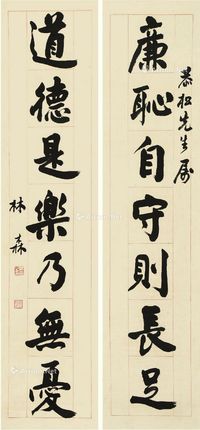 廉恥自守則長足
恭松先生屬
道德是樂乃無憂
林森